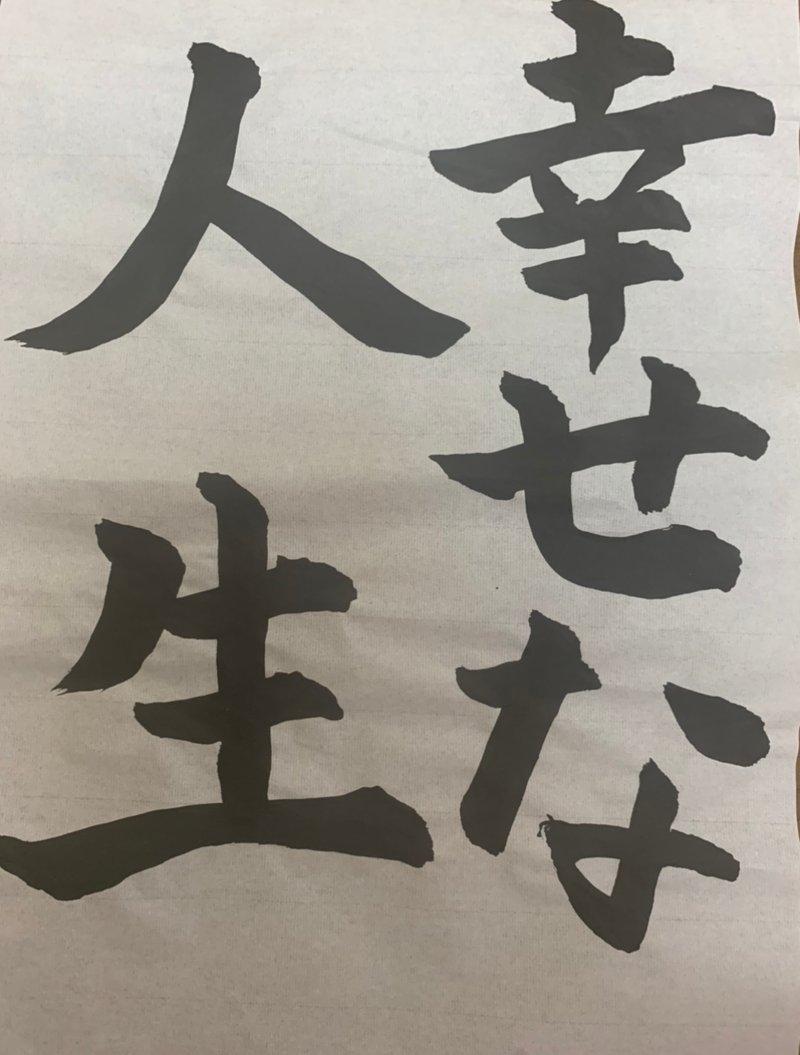 幸せな
人生